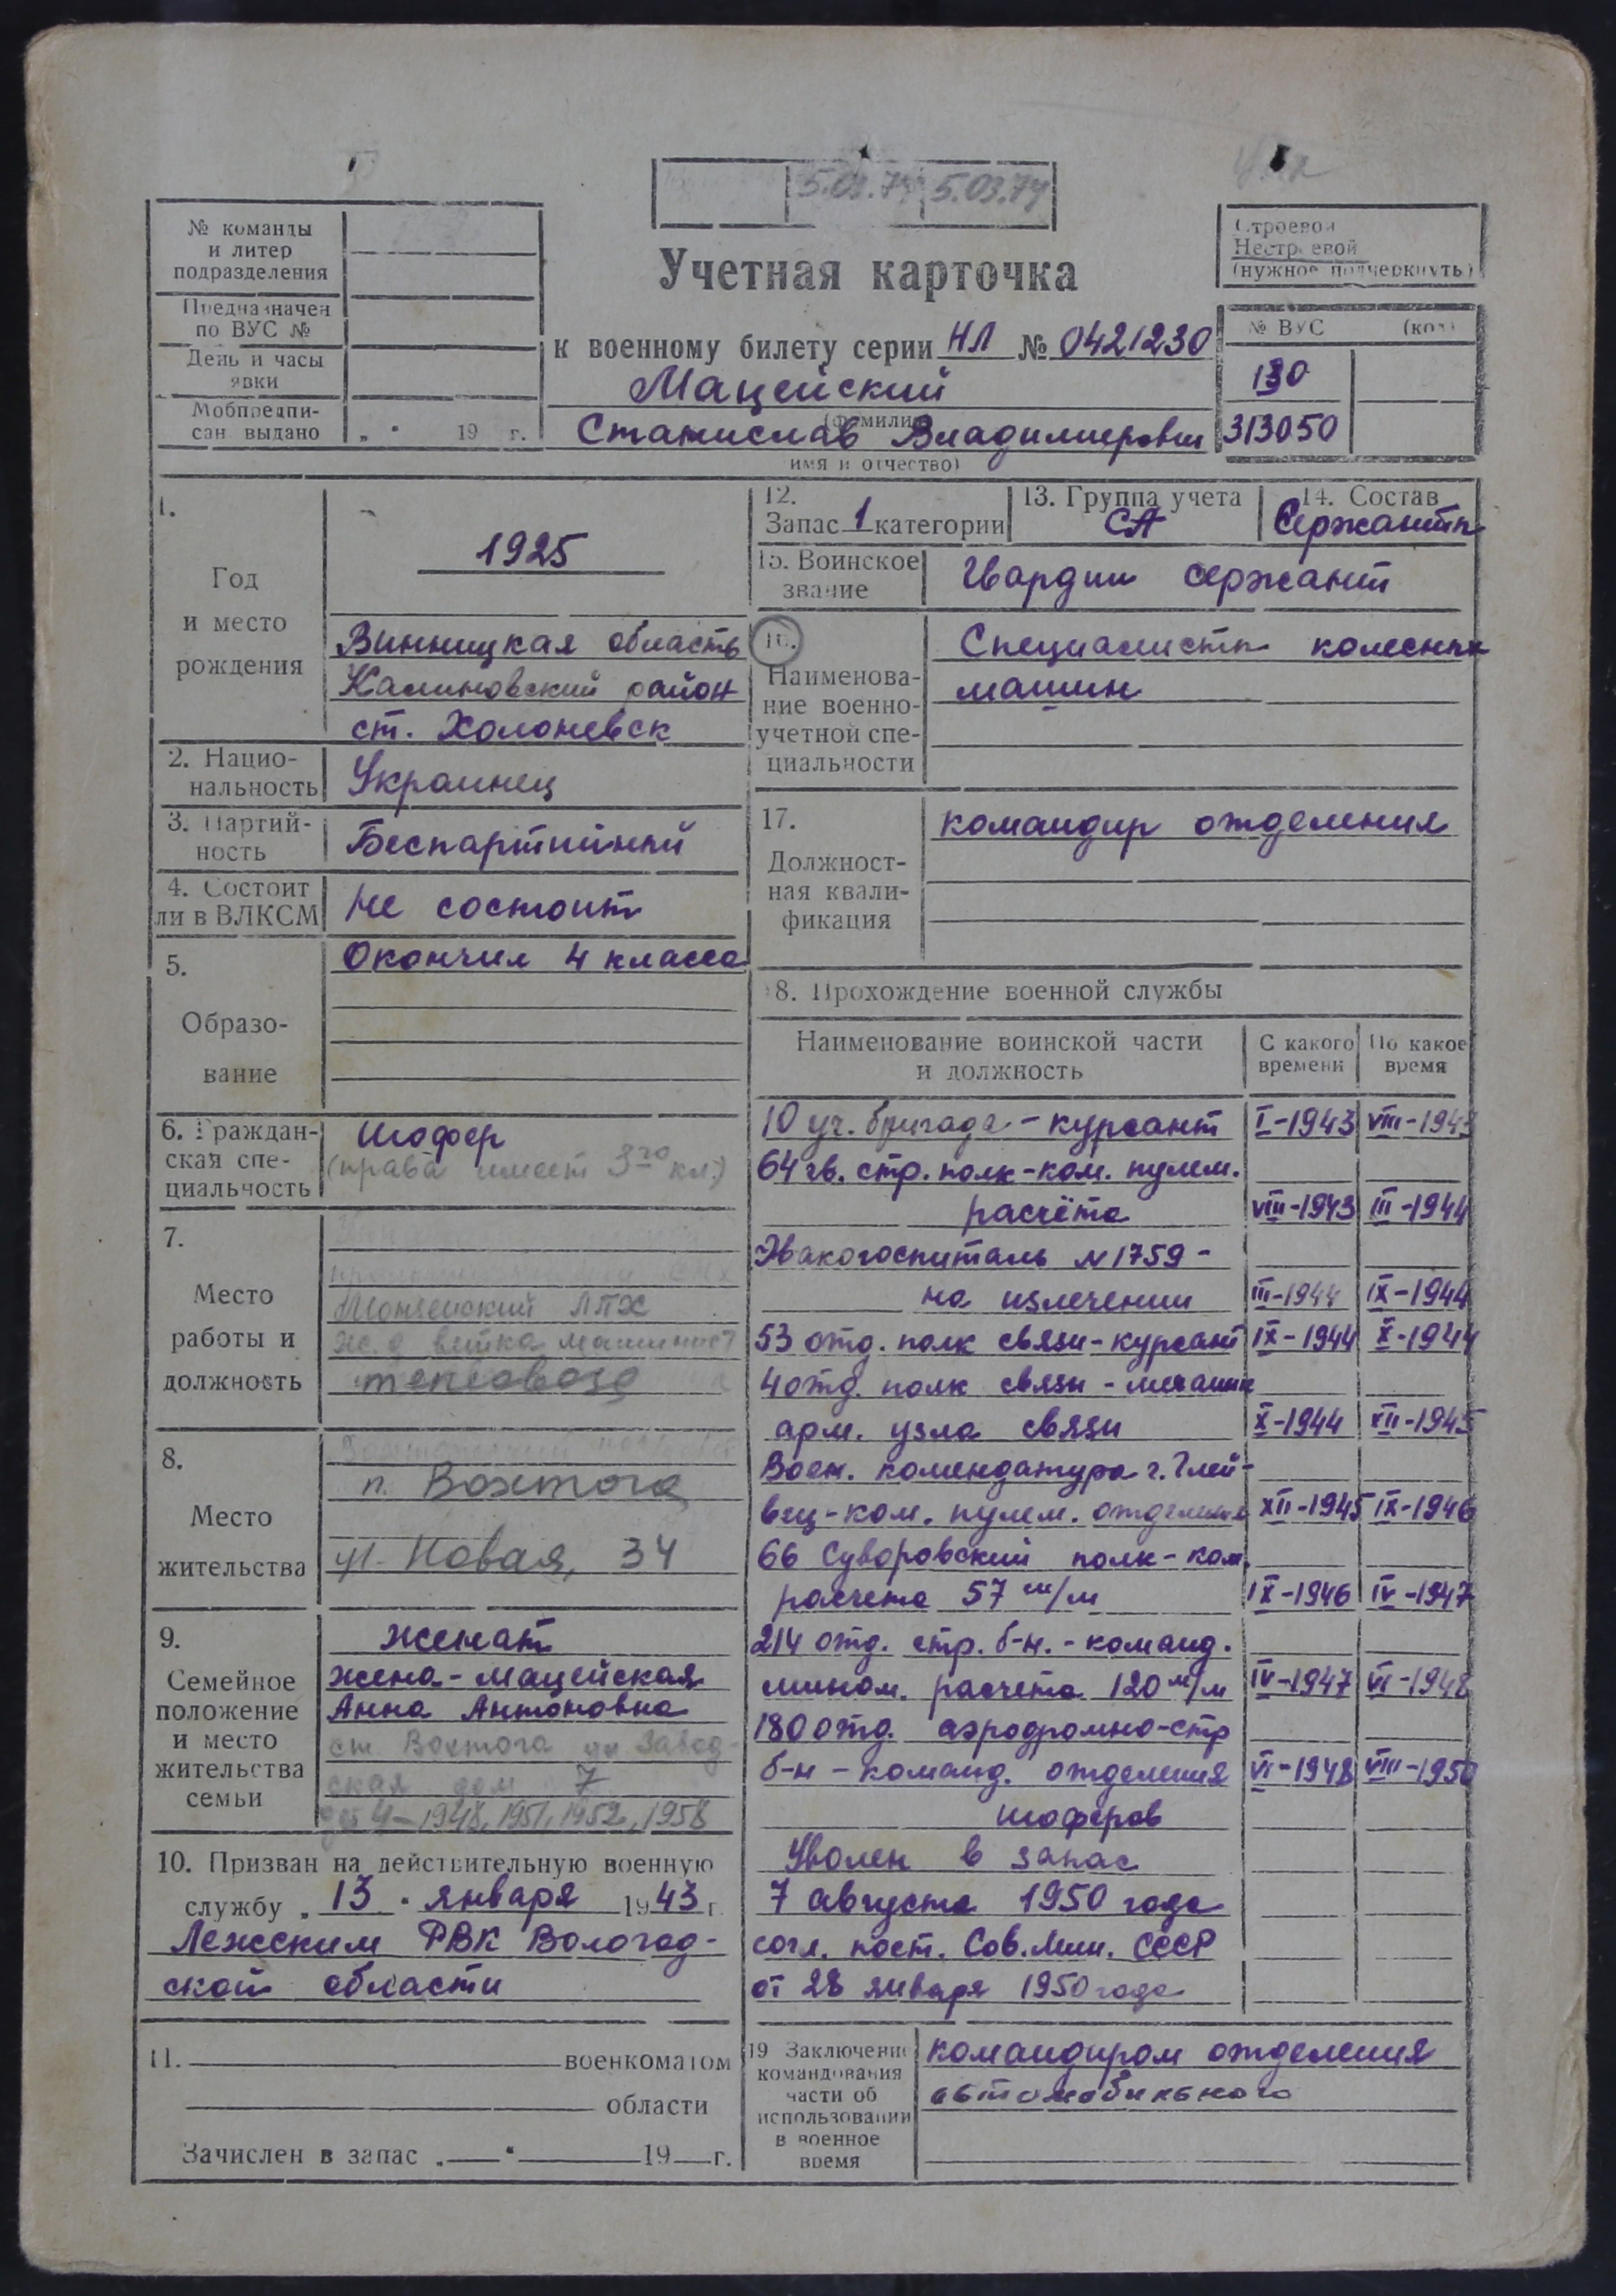 5.03.74 5.03.74
№ команды
и литер
подразделения
Предназначен
по ВУС №
День и часы
явки
Мобпредпи-
сан выдано „ “ 19 г.
Учетная карточка
к военному билету серии НЛ № 0421230
Мацейский
(фамилия
Станислав Владимирович
имя и отчество)
Строевой
Нестроевой
(нужное подчеркнуть)
№ ВУС (код)
130
313050
1.
Год
и место
рождения
1925
Винницкая область
Калиновский район
ст. Холоневск
2. Нацио-
нальность
Украинец
3. Партий-
ность
Беспартийный
4. Состоит
ли в ВЛКСМ
Не состоит
5.
Образо-
вание
Окончил 4 класса
6. Граждан-
ская спе-
циальность
Шофер
(права имеет 3го кл.)
7.
Место
работы и
должность
Монзенский ЛПХ
ж.д ветка машинист
тепловоза
8.
Место
жительства
п. Вохтога
ул. Новая, 34
9.
Семейное
положение
и место
жительства
семьи
Женат
жена - Мацейская
Анна Антоновна
ст. Вохтога ул Завод-
ская дом 7
дет 4 - 1948, 1951, 1952, 1958
10. Призван на действительную военную
службу „13“ января 1943 г.
Лежским РВК Вологод-
ской области
11. военкоматом
области
Зачислен в запас „ “ 19 г.
12.
Запас 1 категории
13. Группа учета
СА
14. Состав
Сержантск
15. Воинское
звание
Гвардии сержант
16.
Наименова-
ние военно-
учетной спе-
циальности
Специалисты колесных
машин
17.
Должност-
ная квали-
фикация
командир отделения
18. Прохождение военной службы
Наименование воинской части
и должность
С какого
времени
По какое
время
10 уч. бригада - курсант I-1943 VIII-1943
64 гв. стр. полк - ком. пулем.
расчёта VIII-1943 III-1944
Эвакогоспиталь N 1759 -
на излечении III-1944 IX-1944
53 отд. полк связи - курсант IX-1944 X-1944
4 отд. полк связи - механик
арм. узла связи X-1944 XII-1945
Воен. комендатура г. Глей-
вец - ком. пулем. отделения XII-1945 IX-1946
66 Суворовский полк - ком.
расчета 57 м/м IX-1946 IV-1947
214 отд. стр. б-н. - команд.
мином. расчета 120 м/м IV-1947 VI-1948
180 отд. аэродромно-стр
б-н - команд. отделения VI-1948 VIII-1950
шоферов
Уволен в запас
7 августа 1950 года
согл. пост. Сов. Мин. СССР
от 28 января 1950 года
19 Заключение
командования
части об
использовании
в военное
время
командиром отделения
автомобильного